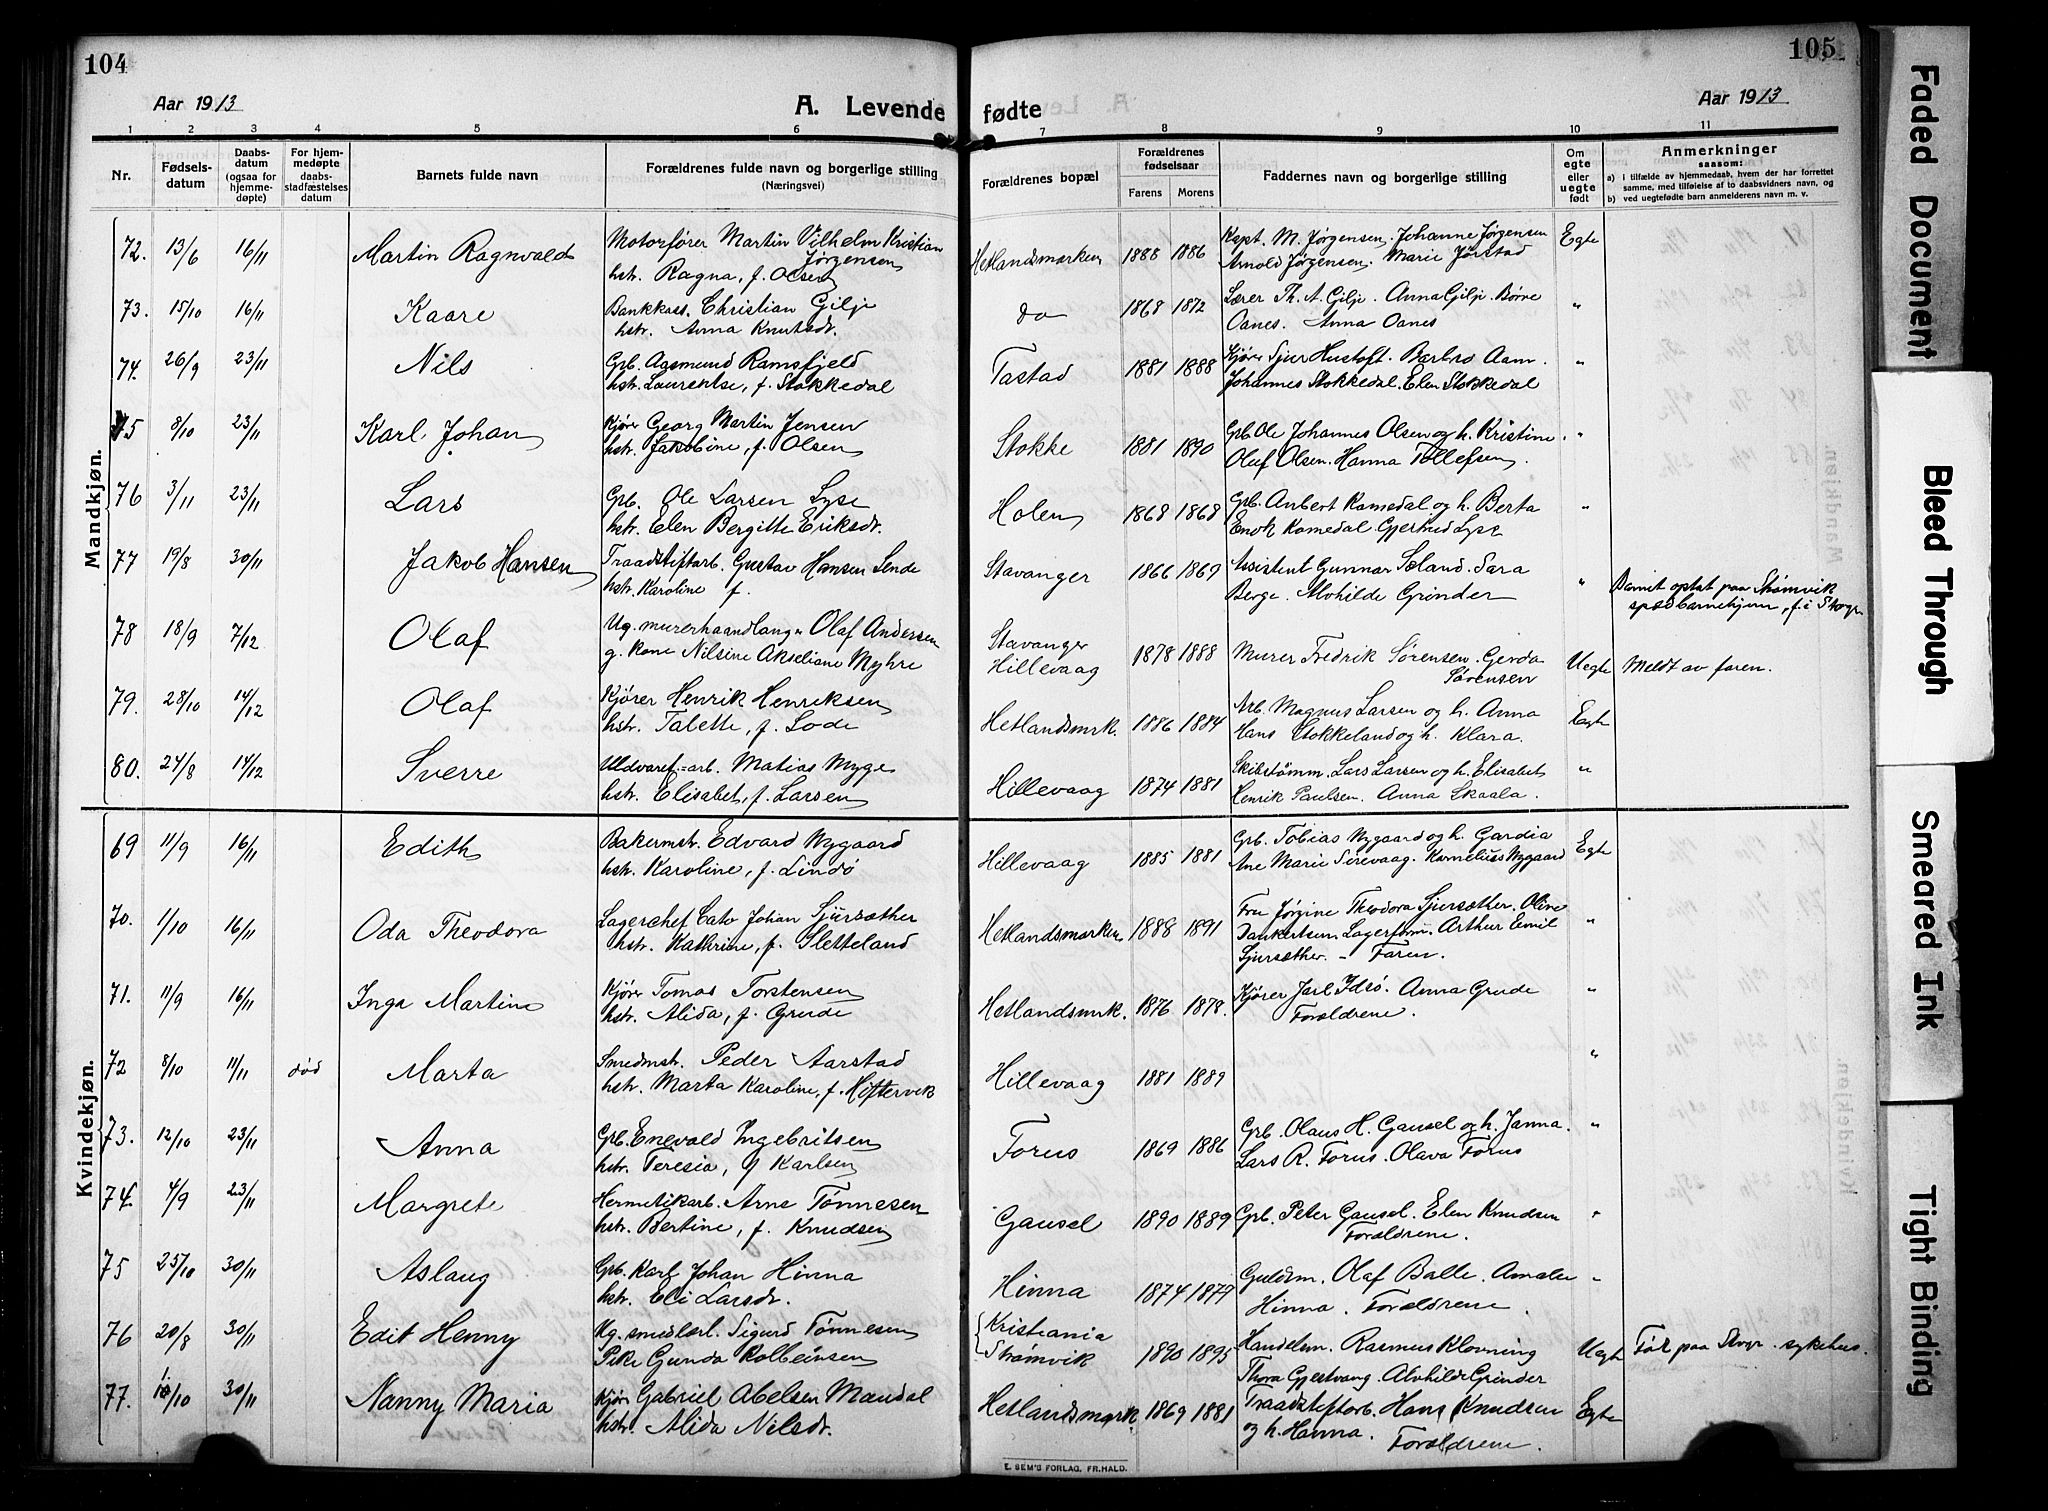 104
Aar 1913
A. Levende
1 2 3 4 5 6
Nr. Fødsels-datum Daabs-datum (ogsaa for hjemme-døpte) For hjem-medøpte daabs-stadfæstelses datum Barnets fulde navn Forældrenes fulde navn og borgerlige stilling (Næringsvei)
Mandkjøn.
72. 13/6 16/11 Martin Ragnvald Motorfører Martin Vilhelm Kristian Jørgensen
hstr. Ragna, f. Olsen
73. 15/10 16/11 Kaare Bankkass. Christian Gilje
hstr. Anna Knutsdr.
74. 26/9 23/11 Nils Grb. Aasmund Ramsfjeld
hstr. Laurentse, f. Stokkedal
75 8/10 23/11 Karl Johan Kjører Georg Martin Jensen
hstr. Jakobine, f. Olsen
76 3/11 23/11 Lars Grb. Ole Larsen Lyse
hstr. Elen Bergitte Eriksdr.
77 19/8 30/11 Jakob Hansen Traadstiftarb. Gustav Hansen Sende
hstr. Karoline f.
78 18/9 7/12 Olaf Ug. murerhaandlanger Olaf Andersen
g. kone Nilsine Akseliane Myhre
79. 28/10 14/12 Olaf Kjører Henrik Henriksen
hstr. Talette, f. Lode
80. 24/8 14/12 Sverre Uldvaref.-arb. Matias Myge
hstr. Elisabet, f. Larsen
Kvindekjøn.
69 11/9 16/11 Edith Bakermstr. Edvard Nygaard
hstr. Karoline, f. Lindø
70. 1/10 16/11 Oda Theodora Lagerchef Cato Johan Sjursæther
hstr. Kathrine, f. Sletteland
71. 11/9 16/11 Inga Martine Kjører Tomas Torstensen
hstr. Alida, f. Grude
72 8/10 11/11 død Marta Smedmstr. Peder Aarstad
hstr. Marta Karoline, f. Høftervik
73. 12/10 23/11 Anna Grb. Enevald Ingebritsen
hstr. Teresia, f Karlsen
74. 4/9 23/11 Margrete Hermetikarb. Arne Tønnesen
hstr. Bertine, f. Knudsen
75 25/10 30/11 Aslaug Grb. Karl Johan Hinna
hstr. Eli Larsdr.
76 20/8 30/11 Edit Henny Ug. smedlærl. Sigurd Tønnesen
Pike Gunda Kolbeinsen
77. /10 30/11 Nanny Maria Kjør. Gabriel Abelsen Mandal
hstr. Alida Nilsdr.
105
fødte
Aar 1913
7 8 9 10 11
Forældrenes bopæl Forældrenes fødselsaar Farens Morens Faddernes navn og borgerlige stilling Om egte eller uegte født Anmerkninger
saasom:
a) i tilfælde av hjemmedaab, hvem der har forrettet samme, med tilføielse af to daabsvidners navn, og
b) ved uegtefødte barn anmelderens navn m. v.
Hetlandsmarken 1888 1886 Kapt. M. Jørgensen. Johanne Jørgensen Egte
Arnold Jørgensen. Marie Jørstad
do 1868 1872 Lærer Th. A. Gilje. Anna Gilje. Børre "
Oanes. Anna Oanes
Tastad 1881 1888 Kjører Sjur Hustoft. Barbro Aam. "
Johannes Stokkedal. Elen Stokkedal
Stokke 1881 1890 Grb. Ole Johannes Olsen og h. Kristine. "
Oluf Olsen. Hanna Tollefsen.
Holen 1868 1868 Grb. Anbert Ramedal og h. Berta "
Enok Ramedal. Gjertrud Lyse
Stavanger 1866 1869 Assistent Gunnar Sæland. Sara "
Berge. Alvhilde Grinder
Barnet optat paa Strømvik
spædbarnehjem, f. i Stvgr
Stavanger
Hillevaag 1878 1888 Murer Fredrik Sørensen. Gerda Sørensen Uegte Meldt av faren.
Hetlandsmrk. 1886 1884 Arb. Magnus Larsen og h. Anna Egte
Hans Stokkeland og h. Klara.
Hillevaag 1874 1881 Skibstømm. Lars Larsen og h. Elisabet "
Henrik Paulsen. Anna Skaala.
Hillevaag 1885 1881 Grb. Tobias Nygaard og h. Gardia Egte
Ane Marie Sirevaag. Kornelius Nygaard
Hetlandsmarken 1888 1891 Fru Jørgine Theodora Sjursæther. Oline "
Dankertsen. Lagerform. Arthur Emil
Sjursæther. – Faren.
Hetlandsmrk. 1876 1878. Kjører Jarl Idsø. Anna Grude "
Forældrene.
Hillevaag 1881 1889 "
Forus 1869 1886 Grb. Olaus H. Gausel og h. Janna. "
Lars R. Forus. Olava Forus
Gausel 1890 1889 Grb. Peter Gausel. Elen Knudsen "
Forældrene.
Hinna 1874 1879 Guldsm. Olaf Balle. Amalie "
Hinna. Forældrene.
Kristiania
Strømvik 1890 1895 Handelsm. Rasmus Klovning Uegte Fød. paa Stvgr. sykehus.
Thora Gjestvang. Alvhilde Grinder
Hetlandsmark. 1869 1881 Traadstiftarb. Hans Knudsen Egte
og h. Hanna. Forældrene.
E. SEM'S FORLAG, FR.HALD.
Faded Document
Bleed Through
Smeared Ink
Tight Binding